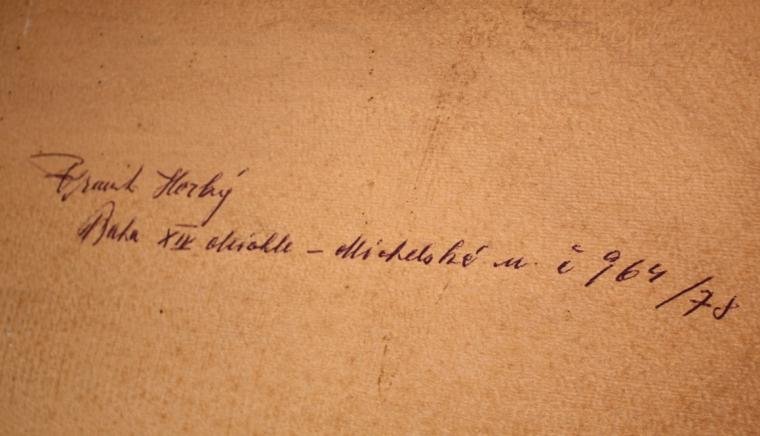 Frant. Horký
Praha XIV Michle – Michelská u. č 964/78